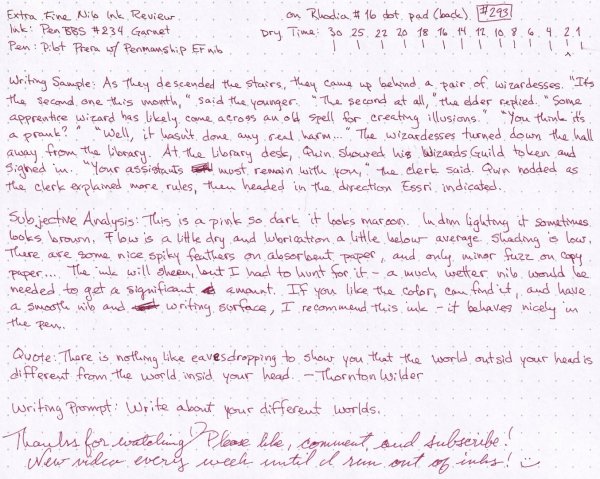 Extra Fine Nib Ink Review on Rhodia #16 dot pad (back) #293
Ink: PenBBS #234 Garnet Dry Time: 30 25 22 20 18 16 14 12 10 8 6 4 2 1
Pen: Pilot Prera w/ Penmanship EF nib
Writing Sample: As they descended the stairs, they came up behind a pair of wizardesses. "It's
the second one this month," said the younger. "The second at all," the elder replied. "Some
apprentice wizard has likely come across an old spell for creating illusions." "You think it's
a prank?" "Well, it hasn't done any real harm..." The wizardesses turned down the hall
away from the library. At the library desk, Quin showed his Wizards Guild token and
signed in. "Your assistants must remain with you," the clerk said. Quin nodded as
the clerk explained more rules, then headed in the direction Essri indicated.
Subjective Analysis: This is a pink so dark it looks maroon. In dim lighting it sometimes
looks brown. Flow is a little dry and lubrication a little below average. Shading is low.
There are some nice spiky feathers on absorbent paper, and only minor fuzz on copy
paper.... The ink will sheen, but I had to hunt for it - a much wetter nib would be
needed to get a significant amount. If you like the color, can find it, and have
a smooth nib and writing surface, I recommend this ink - it behaves nicely in
the pen.
Quote: There is nothing like eavesdropping to show you that the world outsid your head is
different from the world insid your head. - Thornton Wilder
Writing Prompt: Write about your different worlds.
Thanks for watching! Please like, comment, and subscribe!
New video every week until I run out of inks!